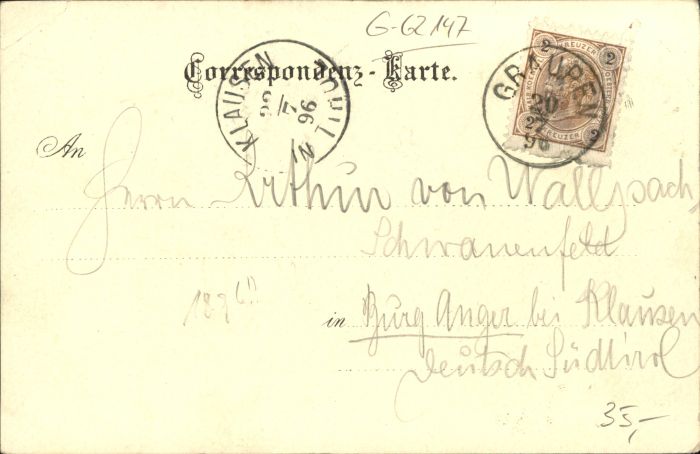 G-62147
Correspondenz-Karte.
KLAUSEN
22
7
96
IN TIROL
2 KREUZER 2
2 KREUZER 2
GRAUPEN
20
96
An
Herrn Arthur von Wallpach
Schwanenfeld
189
in Burg Anger bei Klausen
Deutsch Südtirol
35,-